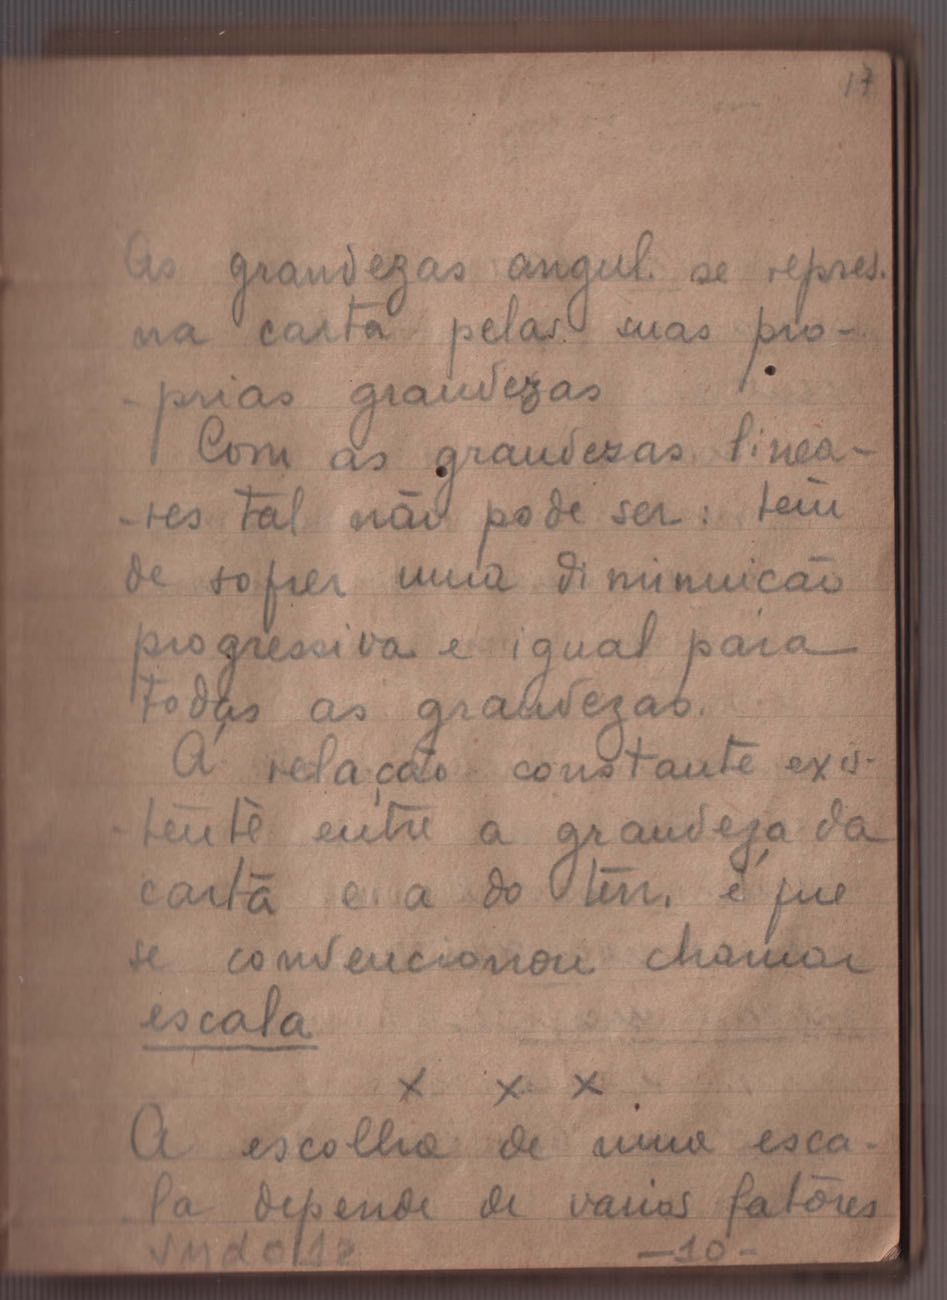 17
As grandezas angul. se repres.
na carta pelas suas pro-
-prias grandezas
Com as grandezas linea-
-res tal não pode ser: tem
de sofrer uma diminuicão
progressiva e igual para
todas as grandezas.
A relação constante exis-
-tente entre a grandeza da
carta e a do terr. é que
se convencionou chamar
escala
x x x
A escolha de uma esca-
la depende de varios fatôres
-10-